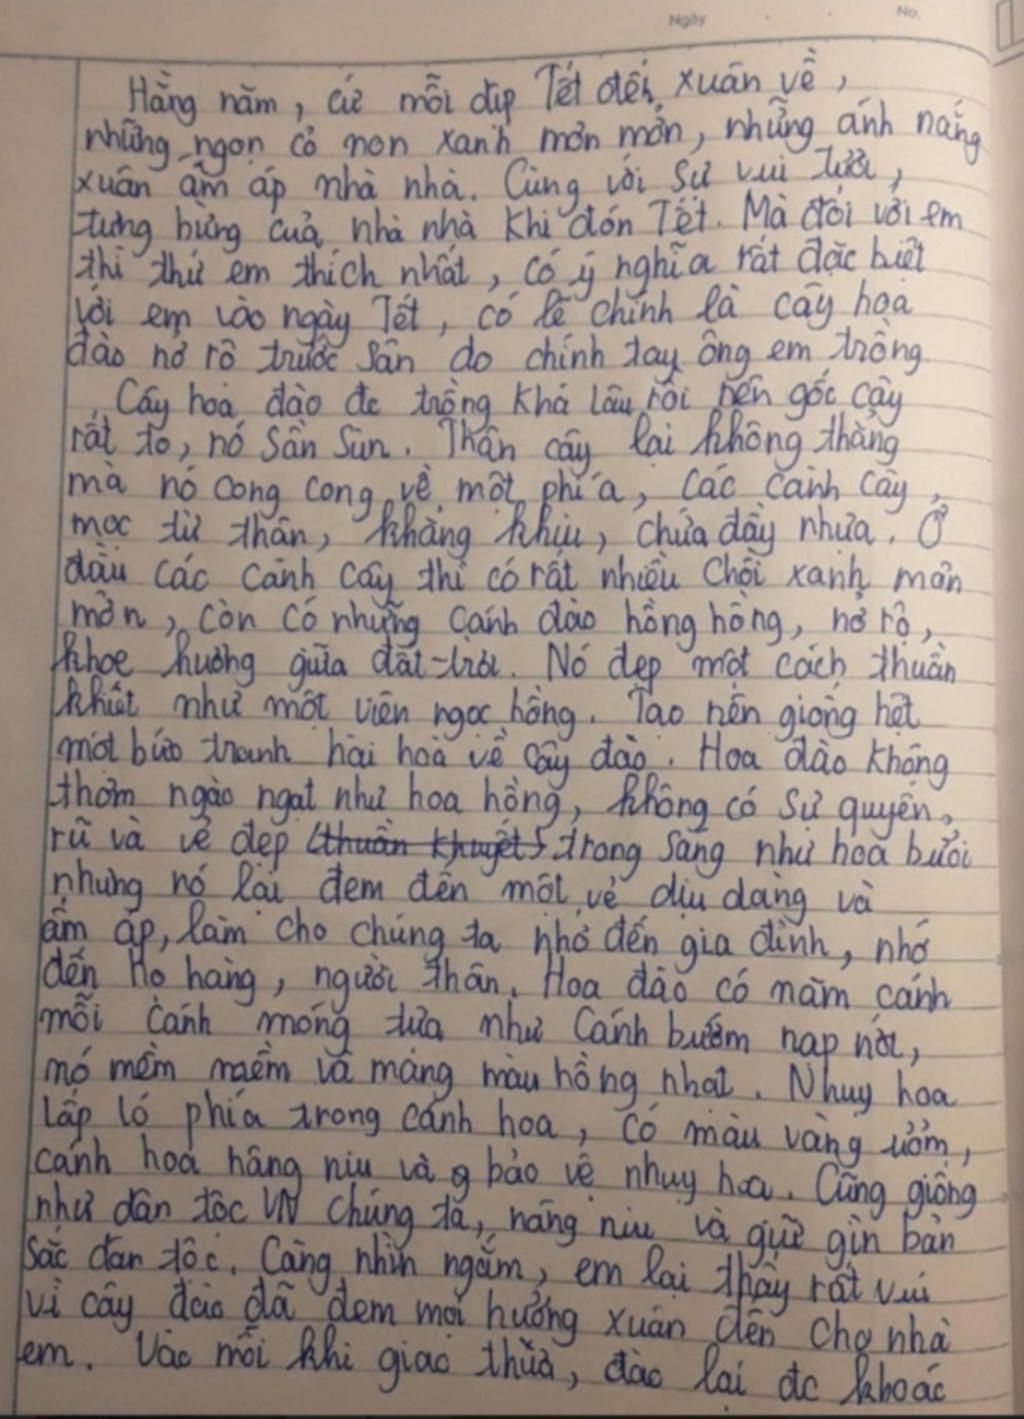 Ngày
No.
Hằng năm, cứ mỗi dịp Tết đến xuân về,
những ngọn cỏ non xanh mơn mởn, những ánh nắng
xuân ấm áp nhà nhà. Cùng với sự vui tươi,
tưng bừng của nhà nhà khi đón Tết. Mà đối với em
thì thứ em thích nhất, có ý nghĩa rất đặc biệt
với em vào ngày Tết, có lẽ chính là cây hoa
đào nở rộ trước sân do chính tay ông em trồng
Cây hoa đào đc trồng khá lâu rồi nên gốc cây
rất to, nó sần sùn. Thân cây lại không thẳng
mà nó cong cong về một phía, các cành cây
mọc từ thân, khẳng khiu, chứa đầy nhựa. Ở
đầu các cành cây thì có rất nhiều chồi xanh mơn
mởn, còn có những cánh đào hồng hồng, nở rộ,
khoe hương giữa đất trời. Nó đẹp một cách thuần
khiết như một viên ngọc hồng. Tạo nên giống hệt
một bức tranh hài hoà về cây đào. Hoa đào không
thơm ngào ngạt như hoa hồng, không có sự quyến
rũ và vẻ đẹp (thuần khuyết) trong sáng như hoa bưởi
nhưng nó lại đem đến một vẻ dịu dàng và
ấm áp, làm cho chúng ta nhớ đến gia đình, nhớ
đến họ hàng, người thân. Hoa đào có năm cánh
mỗi cánh mỏng tựa như cánh bướm nạp nời,
nó mềm mềm và mang màu hồng nhạt. Nhuỵ hoa
lấp ló phía trong cánh hoa, có màu vàng ươm,
cánh hoa nâng niu và bảo vệ nhuỵ hoa. Cũng giống
như dân tộc VN chúng ta, nâng niu và giữ gìn bản
sắc dan tộc. Càng nhìn ngắm, em lại thấy rất vui
vì cây đào đã đem mọi hưởng xuân đến cho nhà
em. Vào mỗi khi giao thừa, đào lại đc khoác